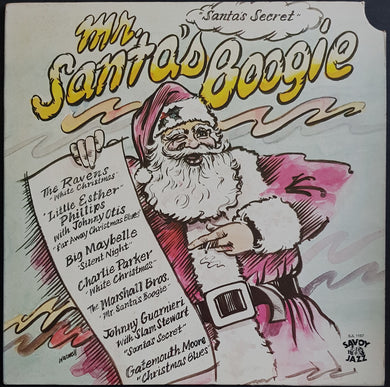 "Santa's Secret"
Mr.
Santa's Boogie
The Ravens
"White Christmas"
"Little Esther"
Phillips
With Johnny Otis
"Far Away Christmas Blues"
Big Maybelle
"Silent Night"
Charlie Parker
"White Christmas"
The Marshall Bros.
"Mr. Santa's Boogie"
Johnny Guarnieri
With Slam Stewart
"Santas Secret"
Gatemouth Moore
"Christmas Blues"
SAVOY
JAZZ